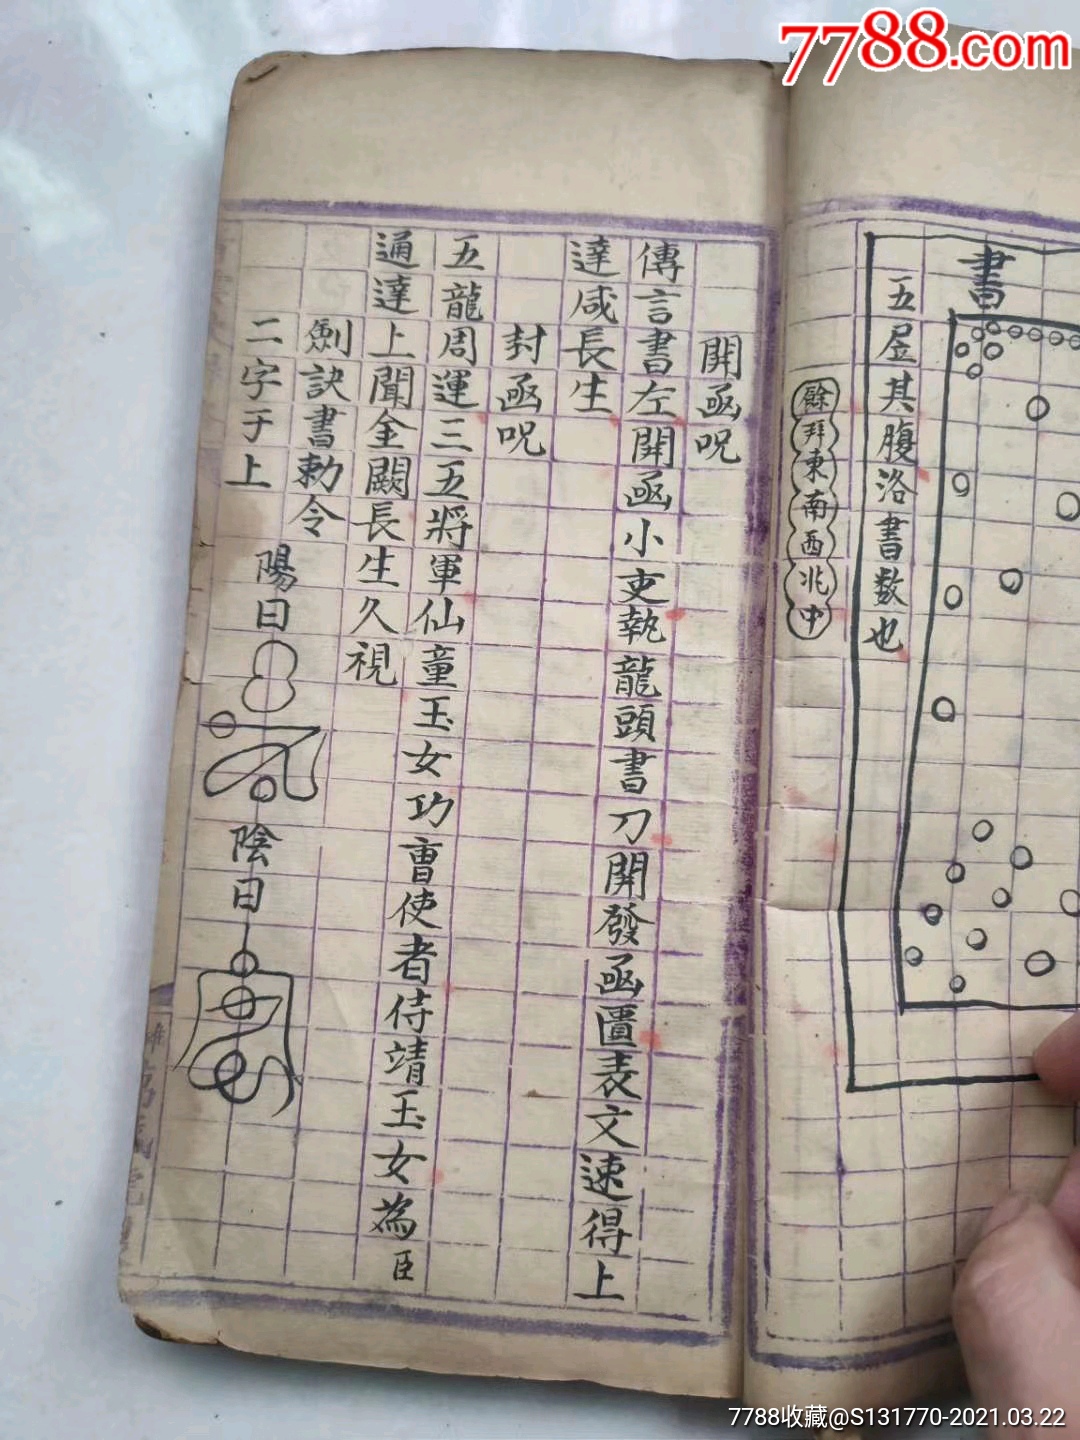 7788.com
書
五居其腹洛書数也
餘拜東南西北中
開函呪
傳言書左開函小吏執龍頭書刀開發函匱表文速得上
達咸長生
封函呪
五龍周運三五將軍仙童玉女功曹使者侍靖玉女為臣
通達上聞金闕長生久視
劍訣書勅令
二字于上
陽日
陰日
7788收藏@S131770-2021.03.22